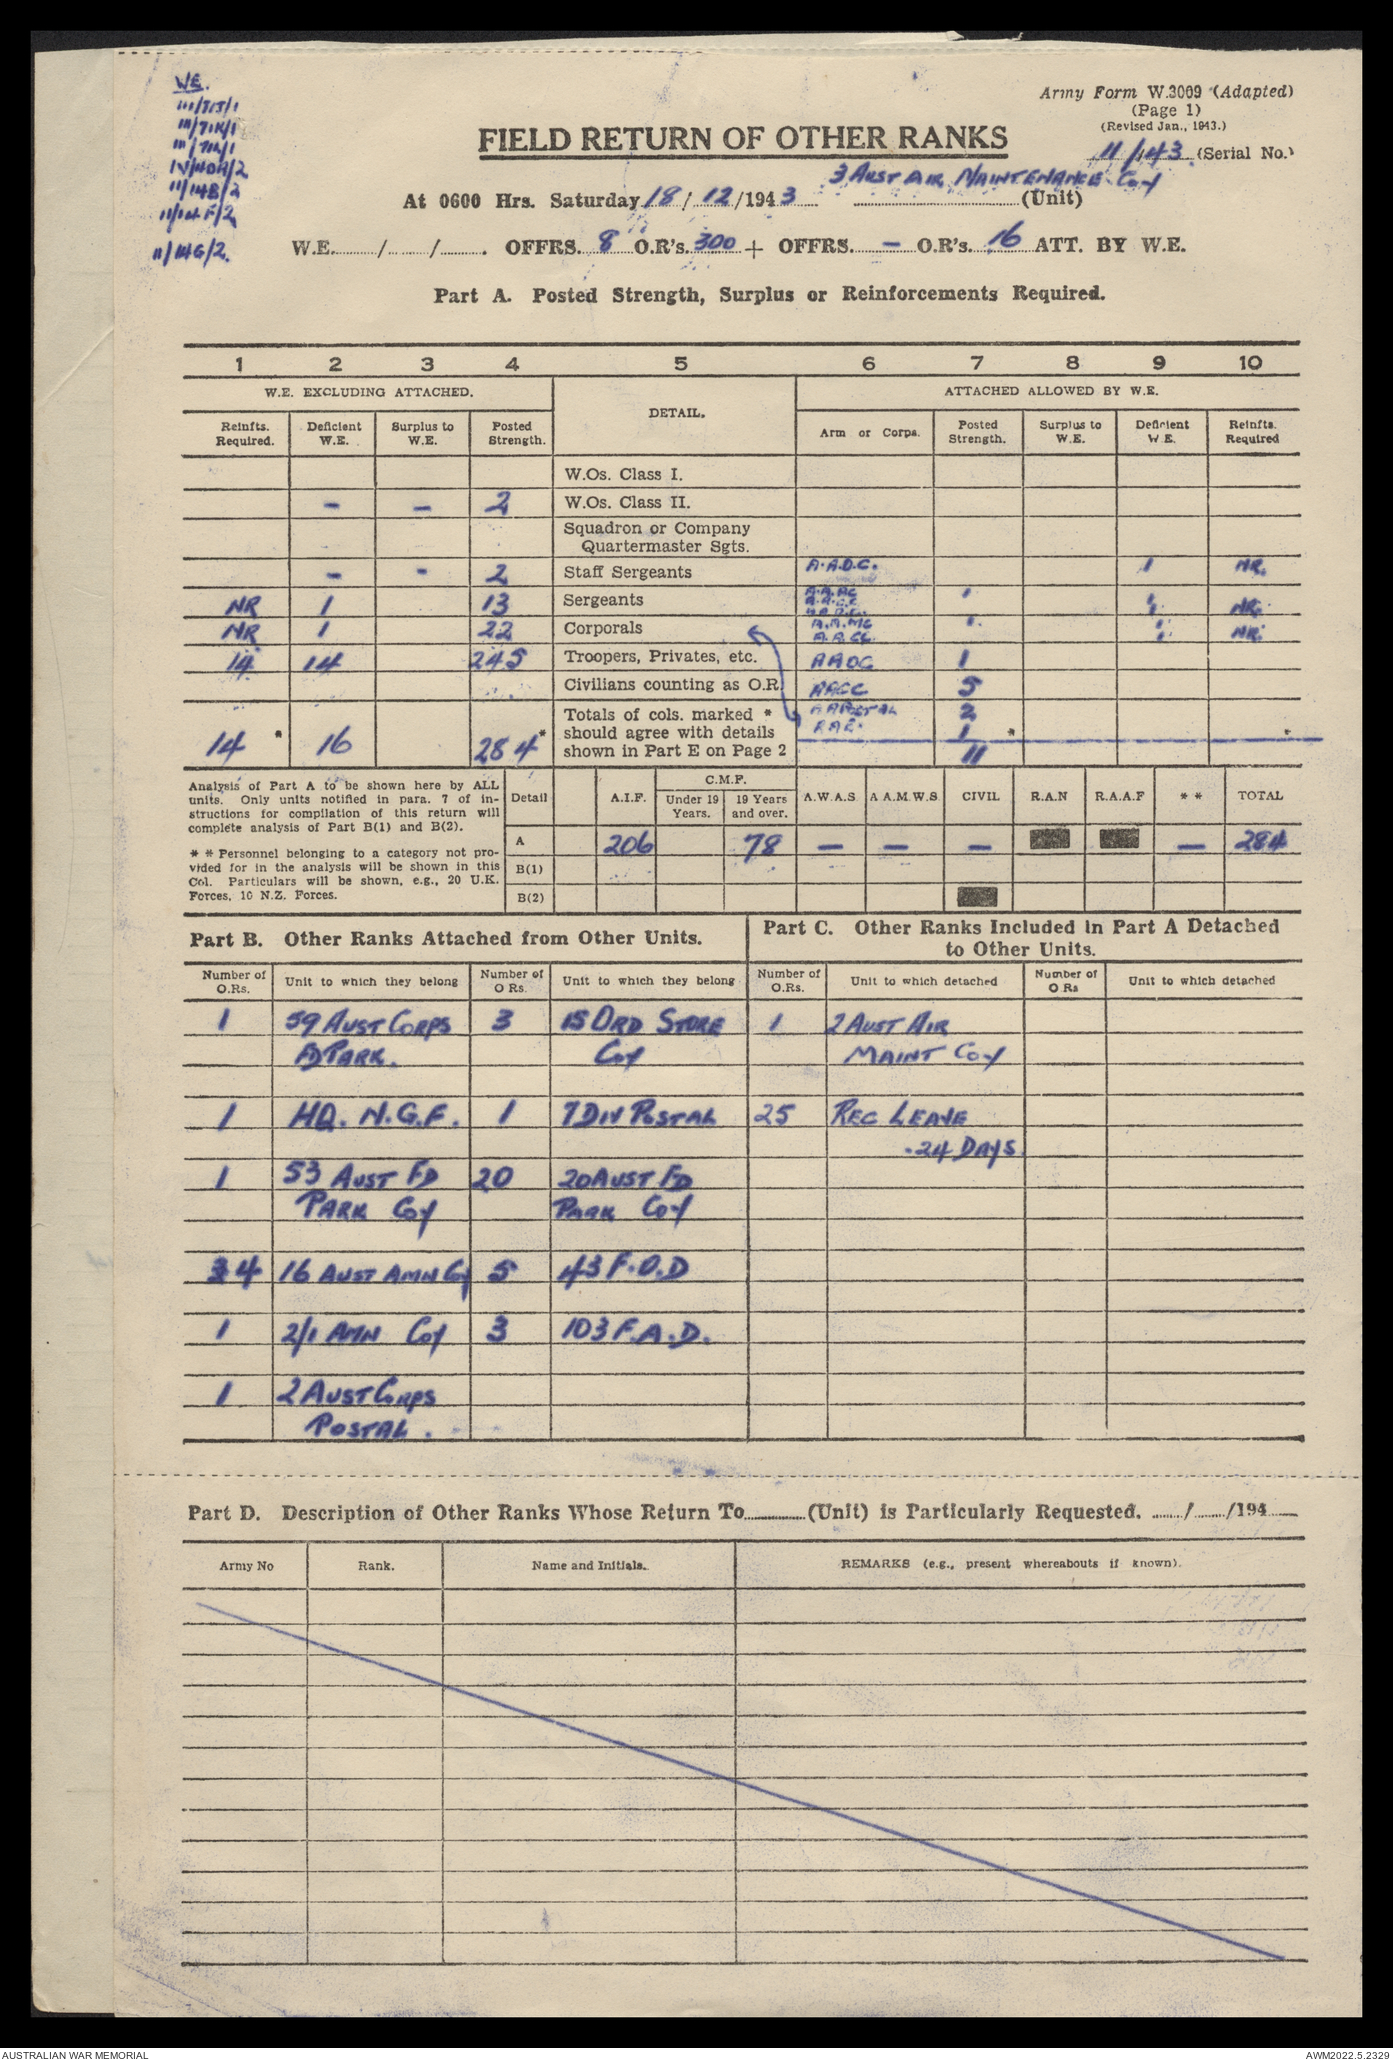 WE.
Army Form W.3009 (Adapted)
(Page 1)
(Revised Jan., 1943.)
11/143 (Serial No.)
111/713/1
111/71K/1
11/14B/2
11/14F/2
11/14G/2.
FIELD RETURN OF OTHER RANKS
3 AUST AIR MAINTENANCE Coy
At 0600 Hrs. Saturday 18/12/1943 (Unit)
W.E. / / . OFFRS. 8 O.R's. 300 + OFFRS. — O.R's. 16 ATT. BY W.E.
Part A. Posted Strength, Surplus or Reinforcements Required.
1 2 3 4 5 6 7 8 9 10
W.E. EXCLUDING ATTACHED. DETAIL. ATTACHED ALLOWED BY W.E.
Reinfts. Required. Deficient W.E. Surplus to W.E. Posted Strength. Arm or Corps. Posted Strength. Surplus to W.E. Deficient W.E. Reinfts. Required
W.Os. Class I.
– – 2 W.Os. Class II.
Squadron or Company
Quartermaster Sgts.
– – 2 Staff Sergeants A.A.D.C. 1 NR.
NR 1 13 Sergeants 1 1 NR.
NR 1 22 Corporals A.A.MC 1 1 NR.
14 14 245 Troopers, Privates, etc. AAOC 1
Civilians counting as O.R. AACC 5
Totals of cols. marked * 2
should agree with details RAE. 1 * *
14 * 16 284 * shown in Part E on Page 2 11
Analysis of Part A to be shown here by ALL
units. Only units notified in para. 7 of in-
structions for compilation of this return will
complete analysis of Part B(1) and B(2).
* * Personnel belonging to a category not pro-
vided for in the analysis will be shown in this
Col. Particulars will be shown, e.g., 20 U.K.
Forces, 10 N.Z. Forces.
Detail A.I.F. C.M.F. Under 19 Years. 19 Years and over. A.W.A.S A A.M.W.S CIVIL R.A.N R.A.A.F * * TOTAL
A 206 78 — — — — 284
B(1)
B(2)
Part B. Other Ranks Attached from Other Units.
Part C. Other Ranks Included in Part A Detached
to Other Units.
Number of O.Rs. Unit to which they belong Number of O Rs. Unit to which they belong Number of O.Rs. Unit to which detached Number of O Rs Unit to which detached
1 59 AUST CORPS 3 15 ORD STORE 1 2 AUST AIR
FD PARK. Coy MAINT Coy
1 HQ. N.G.F. 1 7 DIV POSTAL 25 REC LEAVE
.24 DAYS.
1 53 AUST FD 20 20 AUST FD
PARK Coy PARK Coy
4 16 AUST AMN Coy 5 43 F.O.D
1 2/1 AMN Coy 3 103 F.A.D.
1 2 AUST CORPS
POSTAL.
Part D. Description of Other Ranks Whose Return To (Unit) is Particularly Requested. / /194
Army No Rank. Name and Initials. REMARKS (e.g., present whereabouts if known).
AUSTRALIAN WAR MEMORIAL AWM2022.5.2329